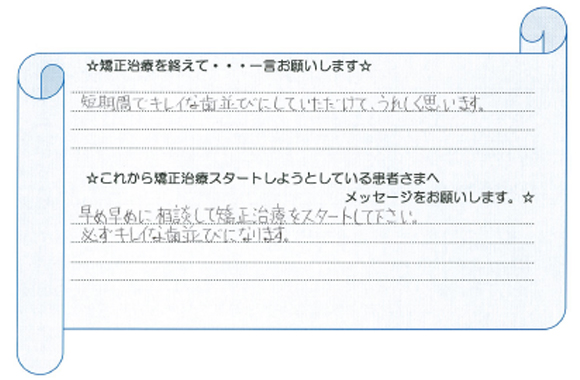 ☆矯正治療を終えて・・・一言お願いします☆
短期間でキレイな歯並びにしていただけて、うれしく思います。
☆これから矯正治療スタートしようとしている患者さまへ
メッセージをお願いします。☆
早め早めに相談して矯正治療をスタートして下さい。
必ずキレイな歯並びになります。